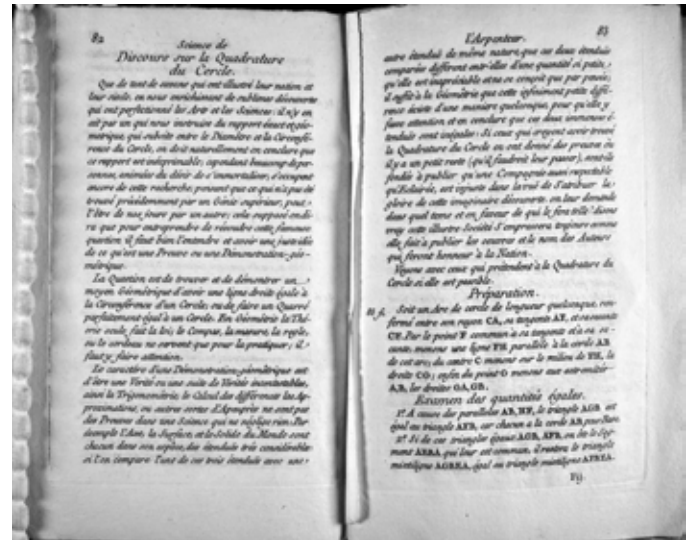 82
Science de
Discours sur la Quadrature
du Cercle.
Que de tant de savans qui ont illustré leur nation et
leur siecle, en nous enrichissant de sublimes découvertes
qui ont perfectionné les Arts et les Sciences; il n'y en
ait pas un qui nous instruise du rapport exact et géo-
métrique, qui subsiste entre le Diamètre et la Circonfé-
rence du Cercle, on doit naturellement en conclure que
ce rapport est inéxprimable; cependant beaucoup de per-
sonnes, animées du désir de s'immortaliser, s'occupent
encore de cette recherche, pensant que ce qui n'a pas été
trouvé précédemment par un Génie supérieur, peut
l'être de nos jours par un autre; cela supposé on di-
ra que pour entreprendre de résoudre cette fameuse
question il faut bien l'entendre et avoir une juste idée
de ce qu'est une Preuve ou une Démonstration-géo-
métrique.
La Question est de trouver et de démontrer un
moyen Géométrique d'avoir une ligne droite égale à
la Circonférence d'un Cercle, ou de faire un Quarré
parfaitement égal à un Cercle. En Géométrie la Thé-
orie seule fait la loi; le Compas, la mesure, la regle,
ou le cordeau ne servent que pour la pratiquer; il
faut y faire attention.
Le caractère d'une Démonstration-géométrique est
d'être une Verité ou une suite de Vérités incontestables,
ainsi la Trigonométrie, le Calcul des différences les Ap-
proximations, ou autres sortes d'Apeuprès ne sont pas
des Preuves dans une Science qui ne néglige rien: Par
éxemple l'Aune, la Surface, et le Solide du Monde sont
chacun dans son espèce, des étendués très considérables
si l'on compare l'une de ces trois étendués avec une
l'Arpenteur.
83
autre étenduë de même nature, que ces deux étenduës
comparées different entr'elles d'une quantité si petite,
qu'elle est inapréciable et ne se conçoit que par pensée;
il suffit à la Géométrie que cette infiniment petite diffé-
rence éxiste d'une maniere quelconque, pour qu'elle y
fasse attention et en conclure que ces deux immenses é-
tenduës sont inégales. Si ceux qui croyent avoir trouvé
la Quadrature du Cercle en ont donné des preuves où
il y a un petit reste (qu'il faudroit leur passer), sont-ils
fondés à publier qu'une Compagnie aussi respectable
qu'Eclairée, est injuste dans la vuë de s'atribuer la
gloire de cette imaginaire découverte, on leur demande
dans quel tems et en faveur de qui le fera-t'elle? disons
vrai cette illustre Société s'empressera toujours comme
elle fait à publier les oeuvres et le nom des Auteurs
qui feront honneur à la Nation.
Voyons avec ceux qui prétendent à la Quadrature du
Cercle si elle est possible.
Préparation.
Soit un Arc de cercle de longueur quelconque, ren-
fermé entre son rayon CA, sa tangente AF, et sa sécante
CF. Par le point F commun à sa tangente et à sa sé-
cante menons une ligne FH parallèle à la corde AB
de cet arc; du centre C menons sur le milieu de FH, la
droite CG; enfin du point G menons aux extrémités
A, B, les droites GA, GB.
Examen des quantités égales.
1º. A cause des paralleles AB, HF, le triangle AGB est
égal au triangle AFB, car chacun a la corde AB pour Base.
2º. Si de ces triangles égaux AGB, AFB, on ôte le Seg-
ment AEBA qui leur est commun, il restera le triangle
mixtiligne AGBEA, égal au triangle mixtiligne AFBEA.
Fij